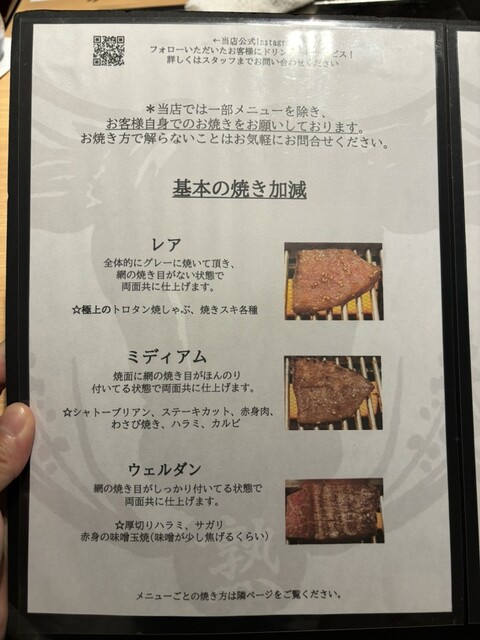 ←当店公式Instagram
フォローいただいたお客様にドリンク サービス！
詳しくはスタッフまでお問い合わせください
＊当店では一部メニューを除き、
お客様自身でのお焼きをお願いしております。
お焼き方で解らないことはお気軽にお問合せください。
基本の焼き加減
レア
全体的にグレーに焼いて頂き、
網の焼き目がない状態で
両面共に仕上げます。
☆極上のトロタン焼しゃぶ、焼きスキ各種
ミディアム
焼面に網の焼き目がほんのり
付いてる状態で両面共に仕上げます。
☆シャトーブリアン、ステーキカット、赤身肉、
わさび焼き、ハラミ、カルビ
ウェルダン
網の焼き目がしっかり付いてる状態で
両面共に仕上げます。
☆厚切りハラミ、サガリ
赤身の味噌玉焼(味噌が少し焦げるくらい)
メニューごとの焼き方は隣ページをご覧ください。